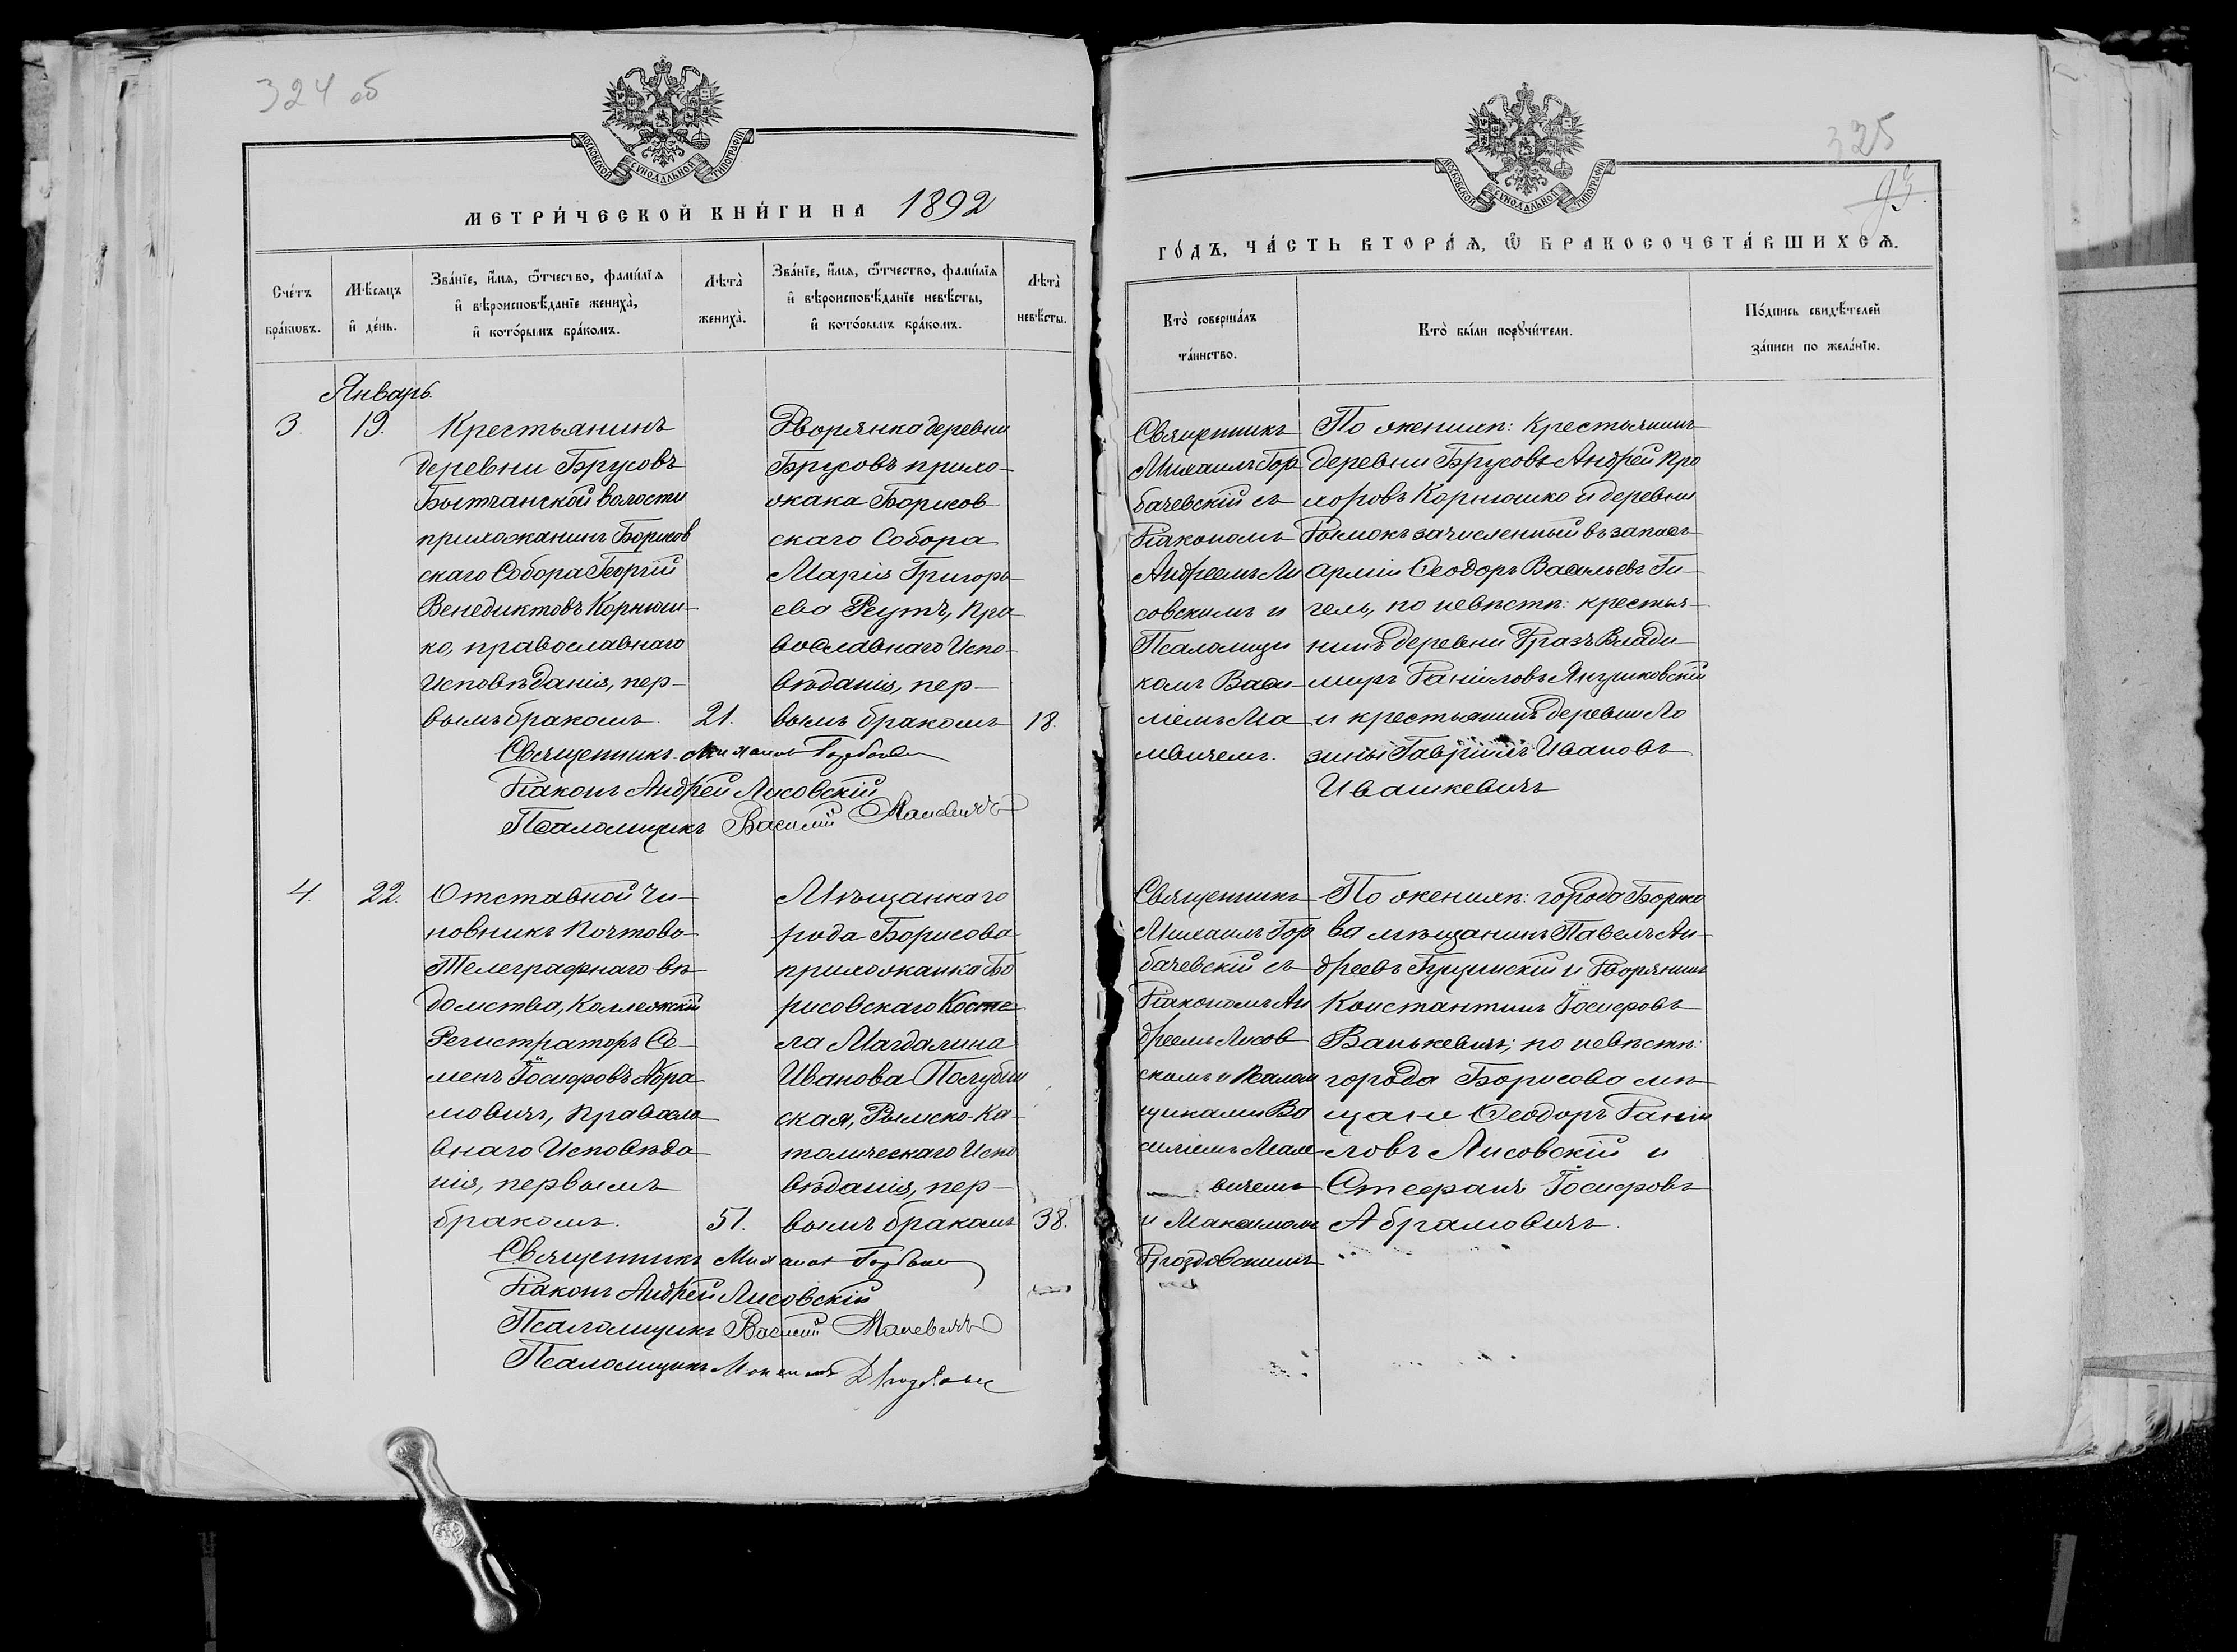 324 об
МОСКОВСКОЙ СѴНОДАЛЬНОЙ ТИПОГРАФІИ
МЕТРИ́ЧЕСКОЙ КНИ́ГИ НА 1892
Сче́тъ
бра́кѡвъ.
Мѣ́сяцъ
и҆ де́нь.
Зва́нїе, и҆́мѧ, ѻ҆́тчество, фами́лїѧ
и҆ вѣроисповѣ́данїе жениха̀,
и҆ кото́рымъ бра́комъ.
Лѣта̀
жениха̀.
Зва́нїе, и҆́мѧ, ѻ҆́тчество, фами́лїѧ
и҆ вѣроисповѣ́данїе невѣ́сты,
и҆ кото́рымъ бра́комъ.
Лѣта̀
невѣ́сты.
Январь.
3.
19.
Крестьянинъ
деревни Брусовъ
Бытчанской волости
прихожанинъ Борисов
скаго Собора Георгій
Венедиктовъ Корнюш-
ко, православнаго
Исповѣданія, пер-
вымъ бракомъ.
21.
Дворянка деревни
Брусовъ прихо-
жака Борисов-
скаго Собора
Марія Григорь-
ева Реутъ, пра-
вославнаго Испо-
вѣданія, пер-
вымъ бракомъ
18.
Священникъ Михаилъ
Діаконъ Андрей Лисовскій
Псаломщикъ Василій Малевичъ
4.
22.
Отставной Чи-
новникъ Почтово-
Телеграфнаго вѣ-
домства, Коллежскій
Регистраторъ Се-
менъ Іосифовъ Абра-
мовичъ, Правосла-
внаго Исповѣда-
нія, первымъ
бракомъ.
51.
Мѣщанка го
рода Борисова
прихожанка Бо
рисовскаго Косте-
ла Магдалина
Иванова
ская, Римско-Ка-
толическаго Испо
вѣданія, пер-
вымъ бракомъ
38.
Священникъ Михаилъ
Діаконъ Андрей Лисовскій
Псаломщикъ Василій Малевичъ
Псаломщикъ
325
93.
МОСКОВСКОЙ СѴНОДАЛЬНОЙ ТИПОГРАФІИ
ГО́ДЪ, ЧА́СТЬ ВТОРА́Ѧ, Ѽ БРАКОСОЧЕТА́ВШИХСѦ.
Кто̀ соверша́лъ
та́инство.
Кто̀ бы́ли порꙋчи́тели.
По́дпись свидѣ́телей
за́писи по жела́нїю.
Священникъ
Михаилъ Гор
бачевскій съ
Діакономъ
Андреемъ Ли
совскимъ и
Псаломщи
комъ Васи-
ліемъ Ма
левичемъ.
По женихѣ: крестьянинъ
деревни Брусовъ Андрей Про
хоровъ Корнюшко и деревни
зачисленный въ запасъ
арміи Ѳеодоръ Васильевъ Ги-
гель, по невѣстѣ: крестья-
нинъ деревни Влади-
миръ Даніиловъ Янушковскій
и крестьянинъ деревни Ло
зины Гавріилъ Ивановъ
Ивашкевичъ
Священникъ
Михаилъ Гор
бачевскій съ
Діакономъ Ан
дреемъ Лисов
скимъ и Псалом
щиками Ва
силіемъ Мале
вичемъ
и Максимомъ
Дроздовскимъ
По женихѣ: города Борисо
ва мѣщанинъ Павелъ Ан-
дреевъ и Дворянинъ
Константинъ Іосифовъ
Ванькевичъ; по невѣстѣ:
города Борисова мѣ-
щане Ѳеодоръ Даніи
ловъ Лисовскій и
Стефанъ Іосифовъ
Абрамовичъ.